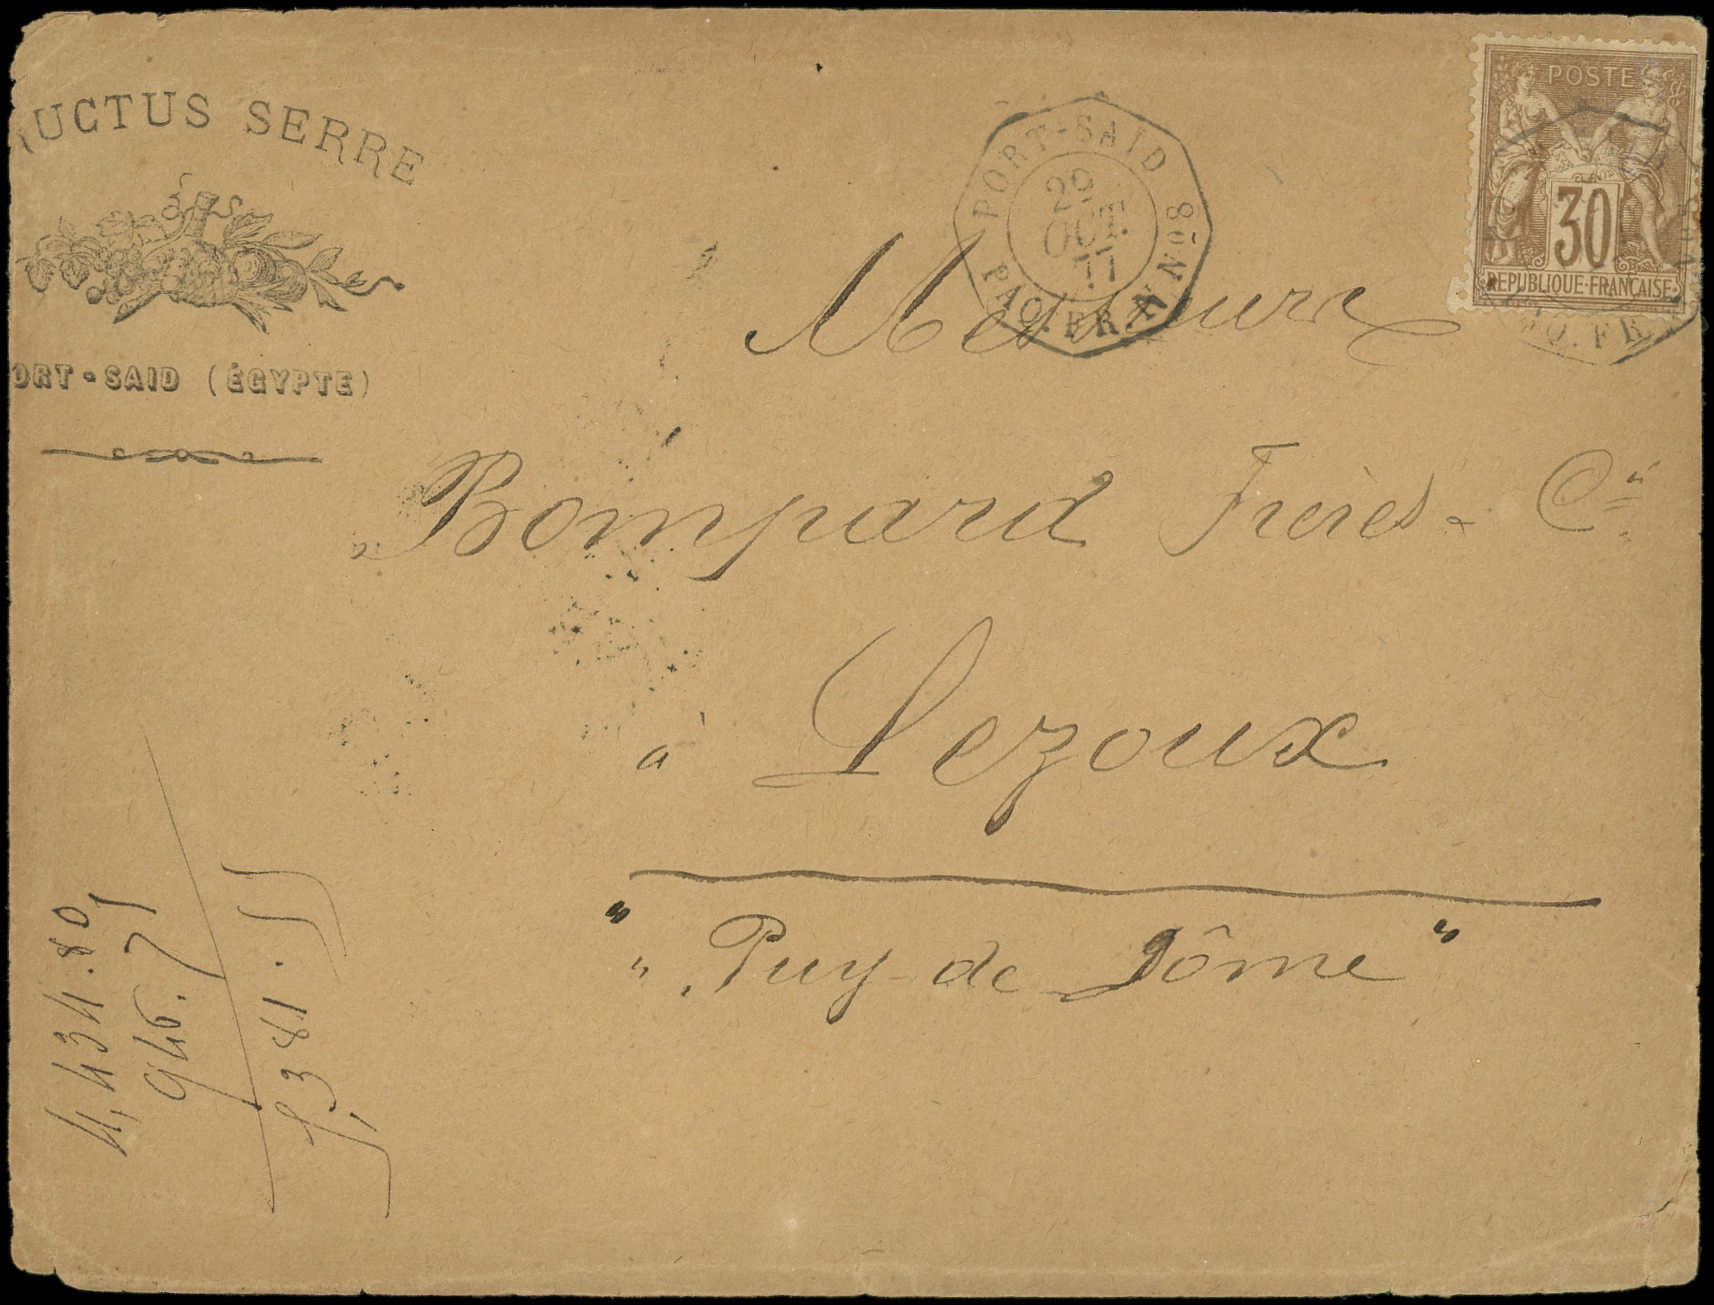 UCTUS SERRE
ORT-SAID (ÉGYPTE)
PORT-SAID
29
OCT.
77
PAQ. FR. N Nº8
POSTE
30
REPUBLIQUE-FRANÇAISE
Q. FR.
Messieurs
Bompard Frères & Cie
à Lezoux
" Puy-de Dôme "
4,434.80
946.75
5,381.55